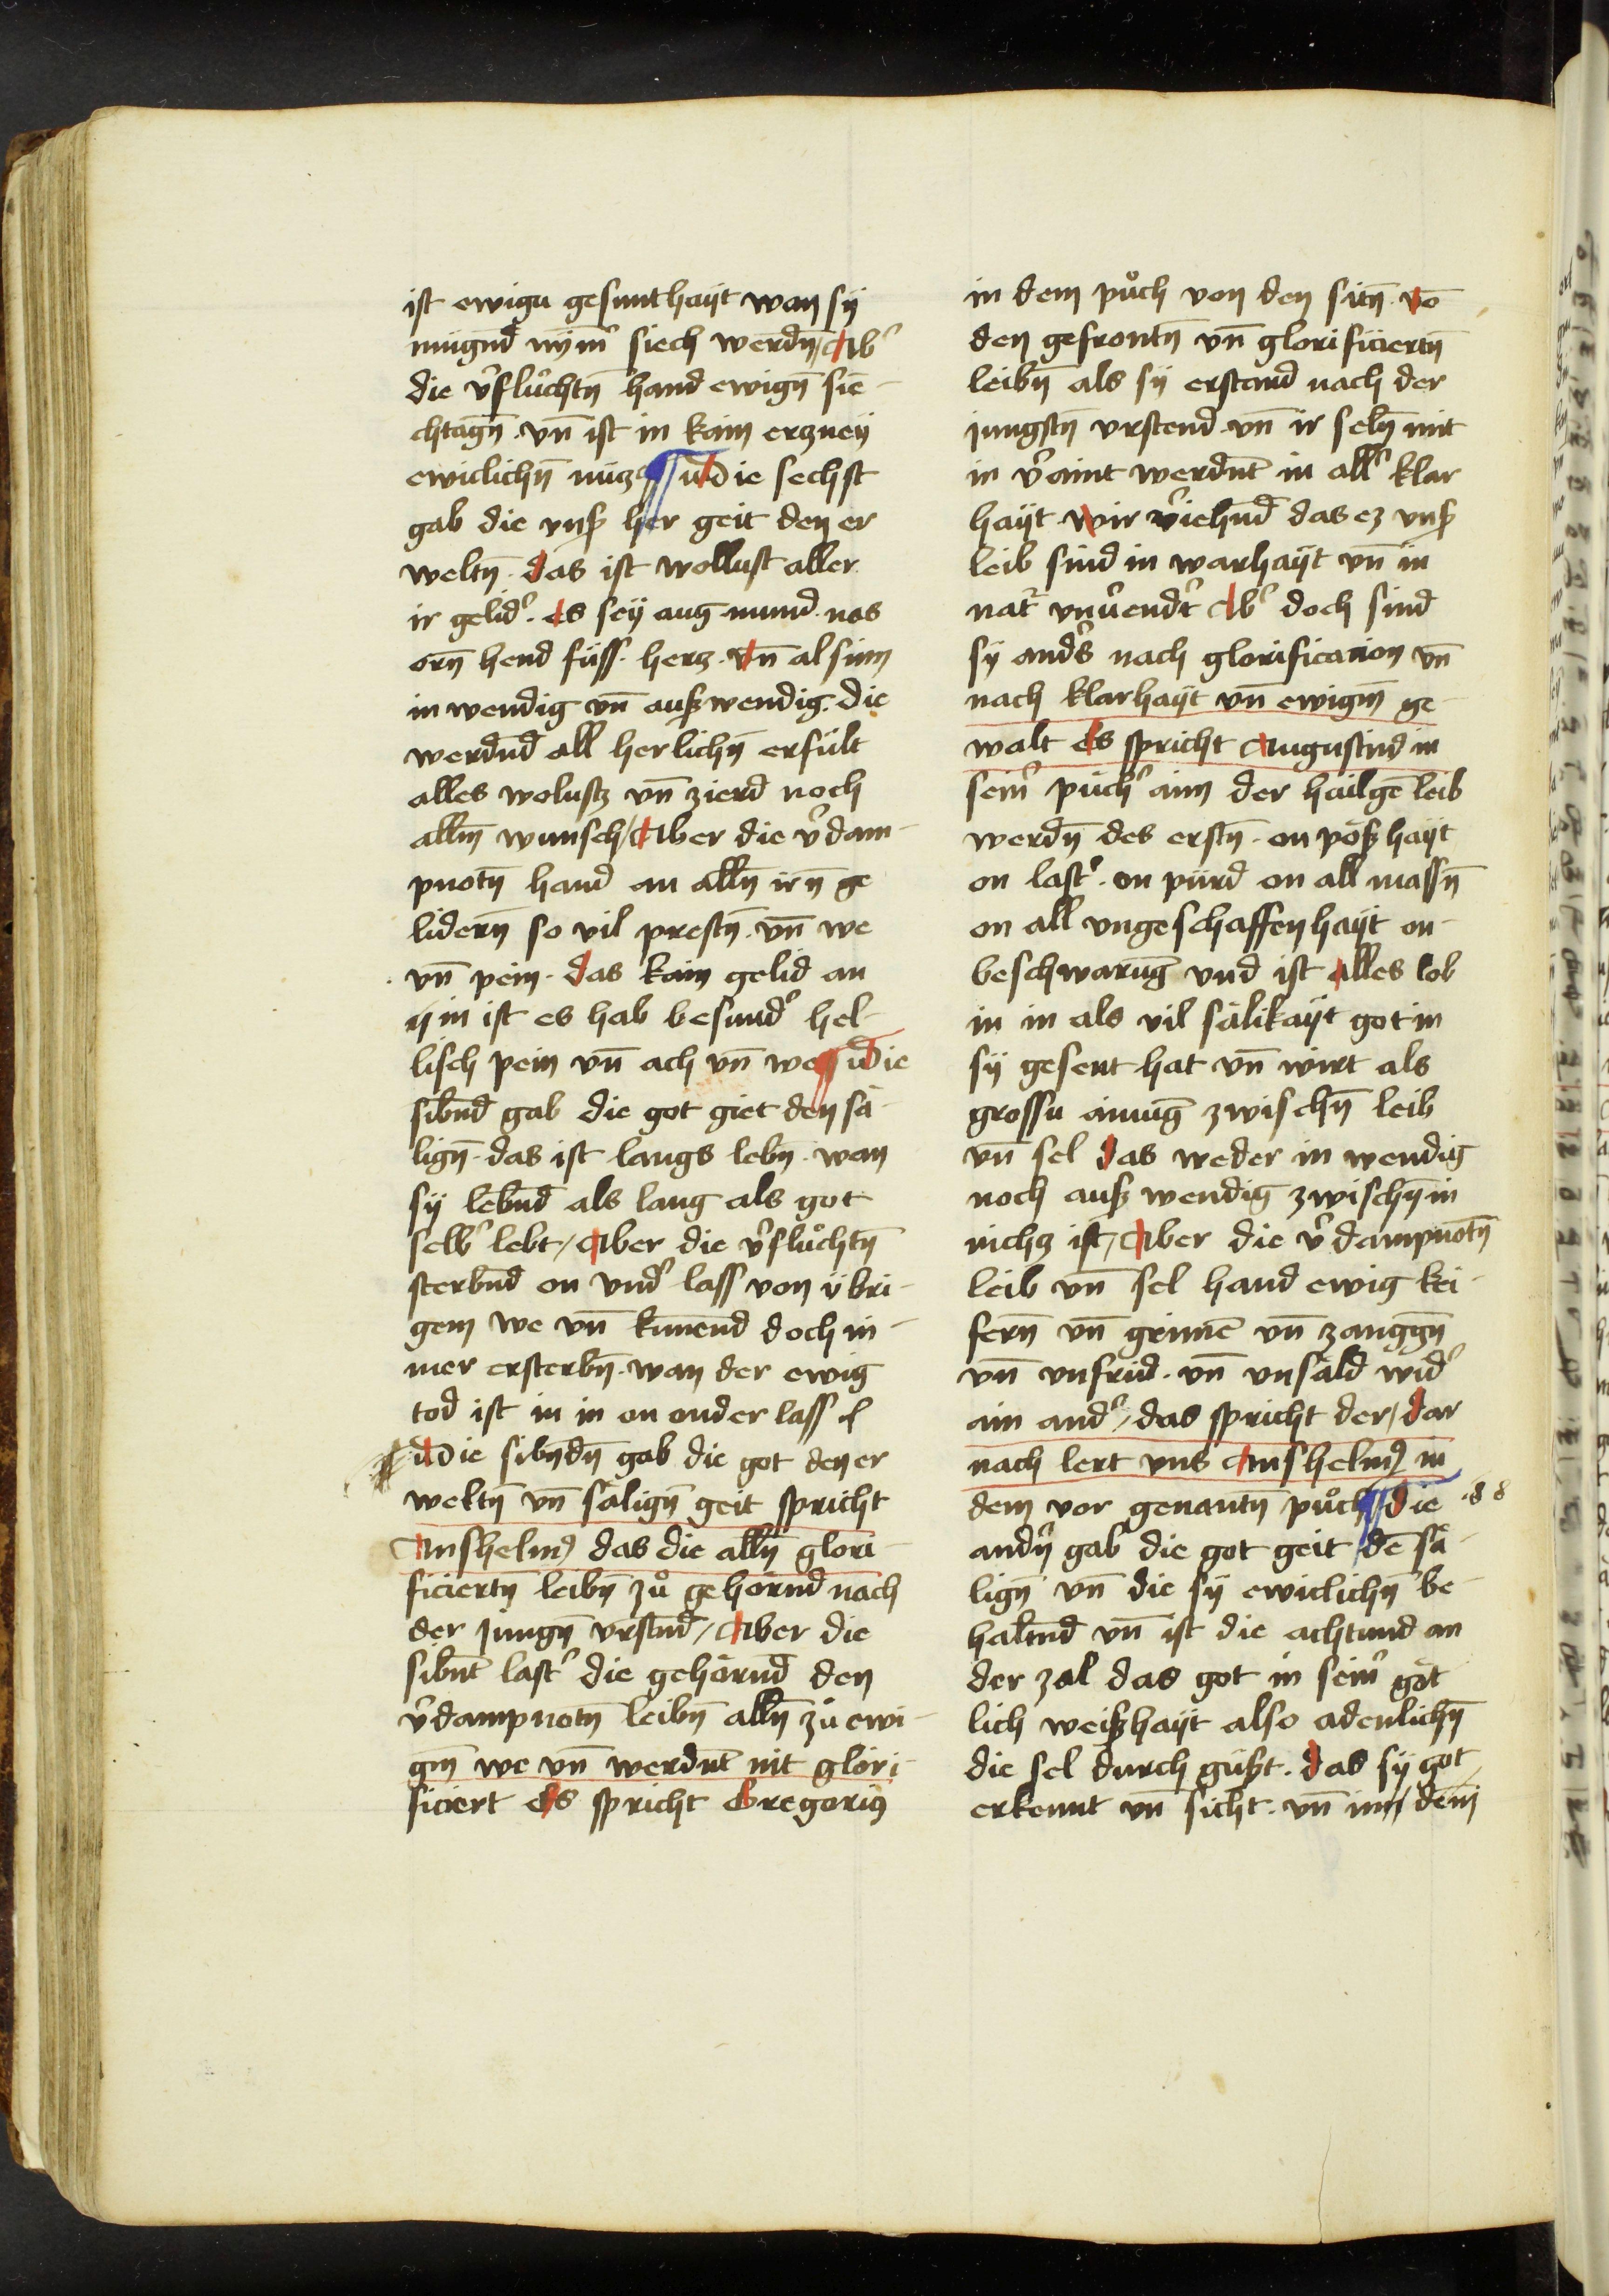 ist ewigu gesunthaÿt wan sÿ
mügnd nÿm̄ˀ siech werdn̄ / Abˀ
die vˀflůchtn̄ hand ewign̄ sie-
chtagn̄ · vn̄ ist in kain erzneÿ
ewiclichn̄ nücz ¶ Die sechst
gab die vnsˀ her geit den er
weltn̄ · das ist wollust aller
ir gelidˀ · es seÿ aug mund · nas
orn̄ hend füss · hercz · Vn̄ al sinn
in wendig vn̄ auß wendig · die
werdnd all herlichn̄ erfült
alles wolustz vn̄ zierd noch
alln̄ wunsch / Aber die vˀdam-
pnotn̄ hand an alln̄ irn̄ ge
lidern̄ so vil prestn̄ · vn̄ we
vn̄ pein · das kain gelid an
in ist es hab besundˀ hel-
lisch pein vn̄ ach vn̄ we ¶ Die
sibnd gab die got giet den sä-
lign̄ · das ist langs lebn̄ · wan
sÿ lebnd als lang als got
selbˀ lebt / Aber die vˀflůchtn̄
sterbnd on vndˀ lass von übri-
gem we vn̄ kunend doch in-
mer ersterbn̄ · wan der ewig
tod ist in in on onder lass
¶ Die sibndn̄ gab die got den er
weltn̄ vn̄ sälign̄ geit spricht
Anshelmꝰ das die alln̄ glori-
ficiertn̄ leibn̄ zů gehörnd nach
der jüngn̄ vrstnd / Aber die
sibnt lastˀ die gehörnd den
vˀdampnotn̄ leibn̄ alln̄ zů ewi-
gm̄ we vn̄ werdnt nit glori-
ficiert Es spricht Gregoriꝰ
in dem půch von den sitn̄ · Vō
den gefrontn̄ vn̄ glorificiertn̄
leibn̄ als sÿ erstand nach der
jungstn̄ vrstend · vn̄ ir seln̄ mit
in vˀaint werdnt in allˀ klar
haÿt · Wir vˀiehnd das ez vnsˀ
leib sind in warhaÿt vn̄ in
natˀ vnuˀendˀt Abˀ doch sind
sÿ andˀs nach glorificacion vn̄
nach klarhaÿt vn̄ ewigm̄ ge-
walt Es spricht Augustinꝰ in
seinˀ püchˀ aim der hailgē leib
werdn̄ des erstn̄ · on pößhaÿt
on lastˀ · on pürd on all massn̄
on all vngeschaffenhaÿt on-
beschwarūg vnd ist alles lob
in in als vil sälikaÿt got in
sÿ gesent hat vn̄ wirt als
grossu ainūg zwischn̄ leib
vn̄ sel das weder in wendig
noch auß wendig zwischn̄ in
nichz ist / Aber die vˀdampnotn̄
leib vn̄ sel hand ewig kei-
fern̄ vn̄ grimē vn̄ zanggn̄
vn̄ vnfrid · vn̄ vnsäld widˀ
ain andˀ / das spricht der / dar
nach lert vns Anshelmꝰ in
dem vor genantn̄ půch ¶ die · 8 8
andˀn gab die got geit dē sä-
lign̄ vn̄ die sÿ ewiclichn̄ be-
haltnd vn̄ ist die achtund an
der zal das got in seinˀ göt
lich weißhaÿt also adenlichn̄
die sel durch güßt · das sÿ got
erkennt vn̄ sicht · vn̄ inn dem